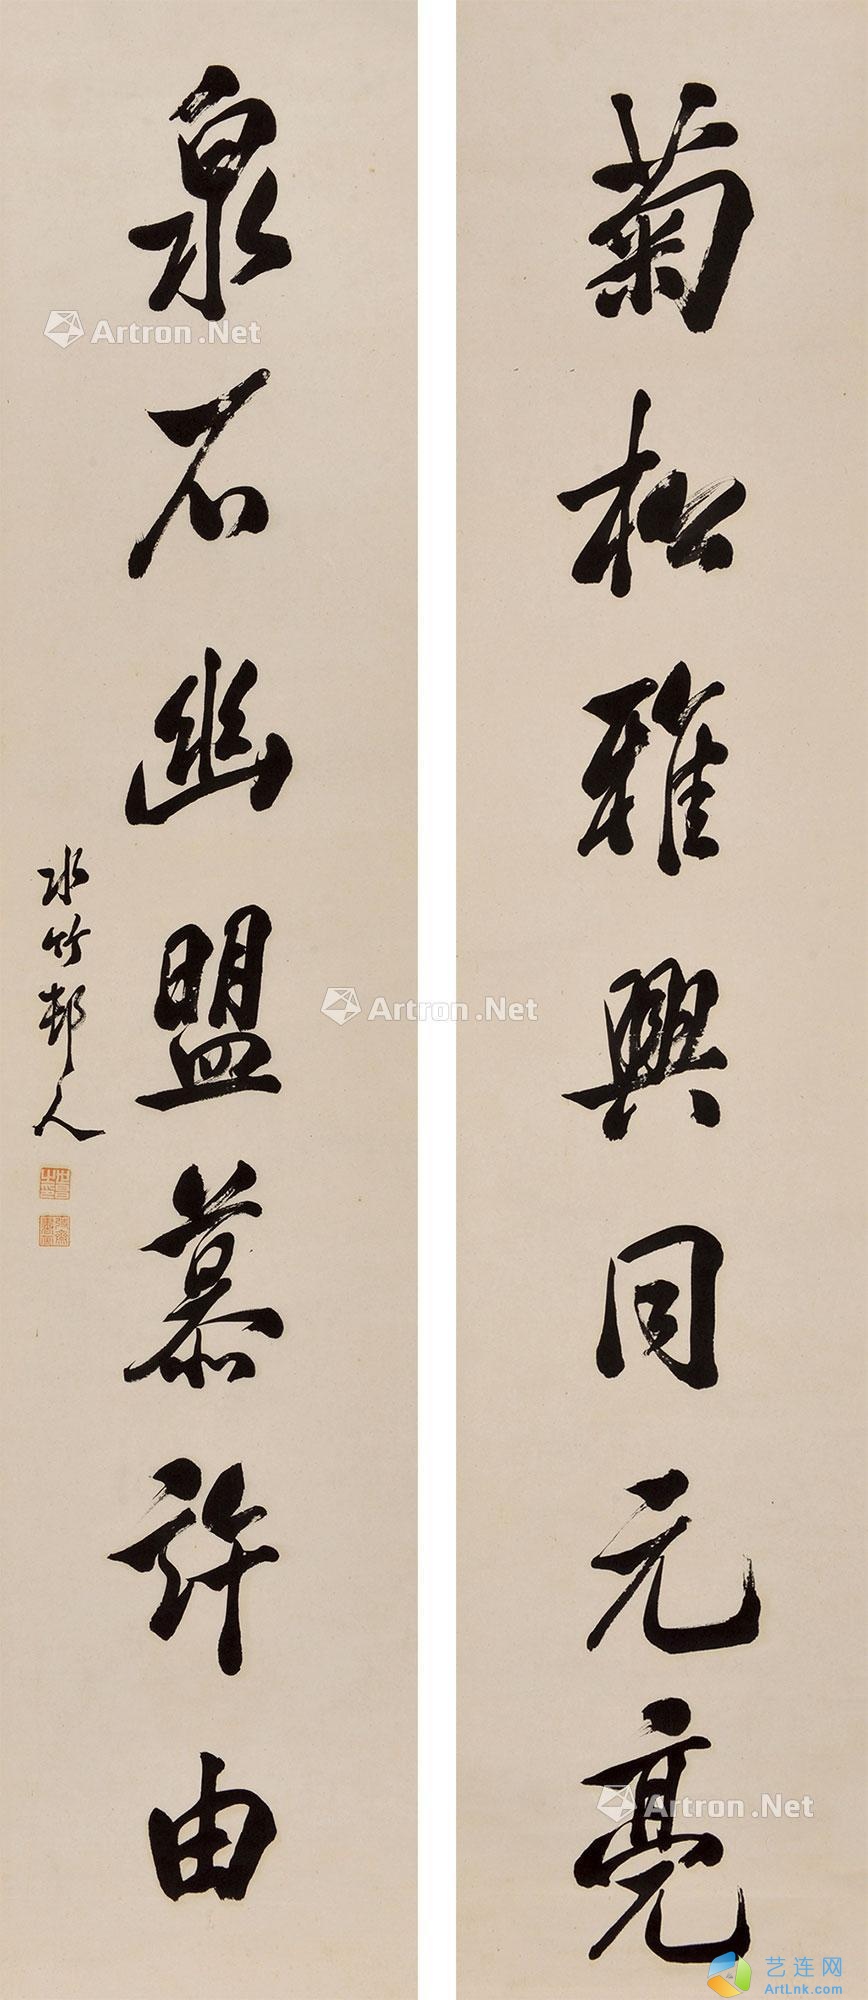 菊松雅興同元亮
泉石幽盟慕許由
水竹邨人
Artron.Net
Artron.Net
Artron.Net
艺连网
ArtLnk.com